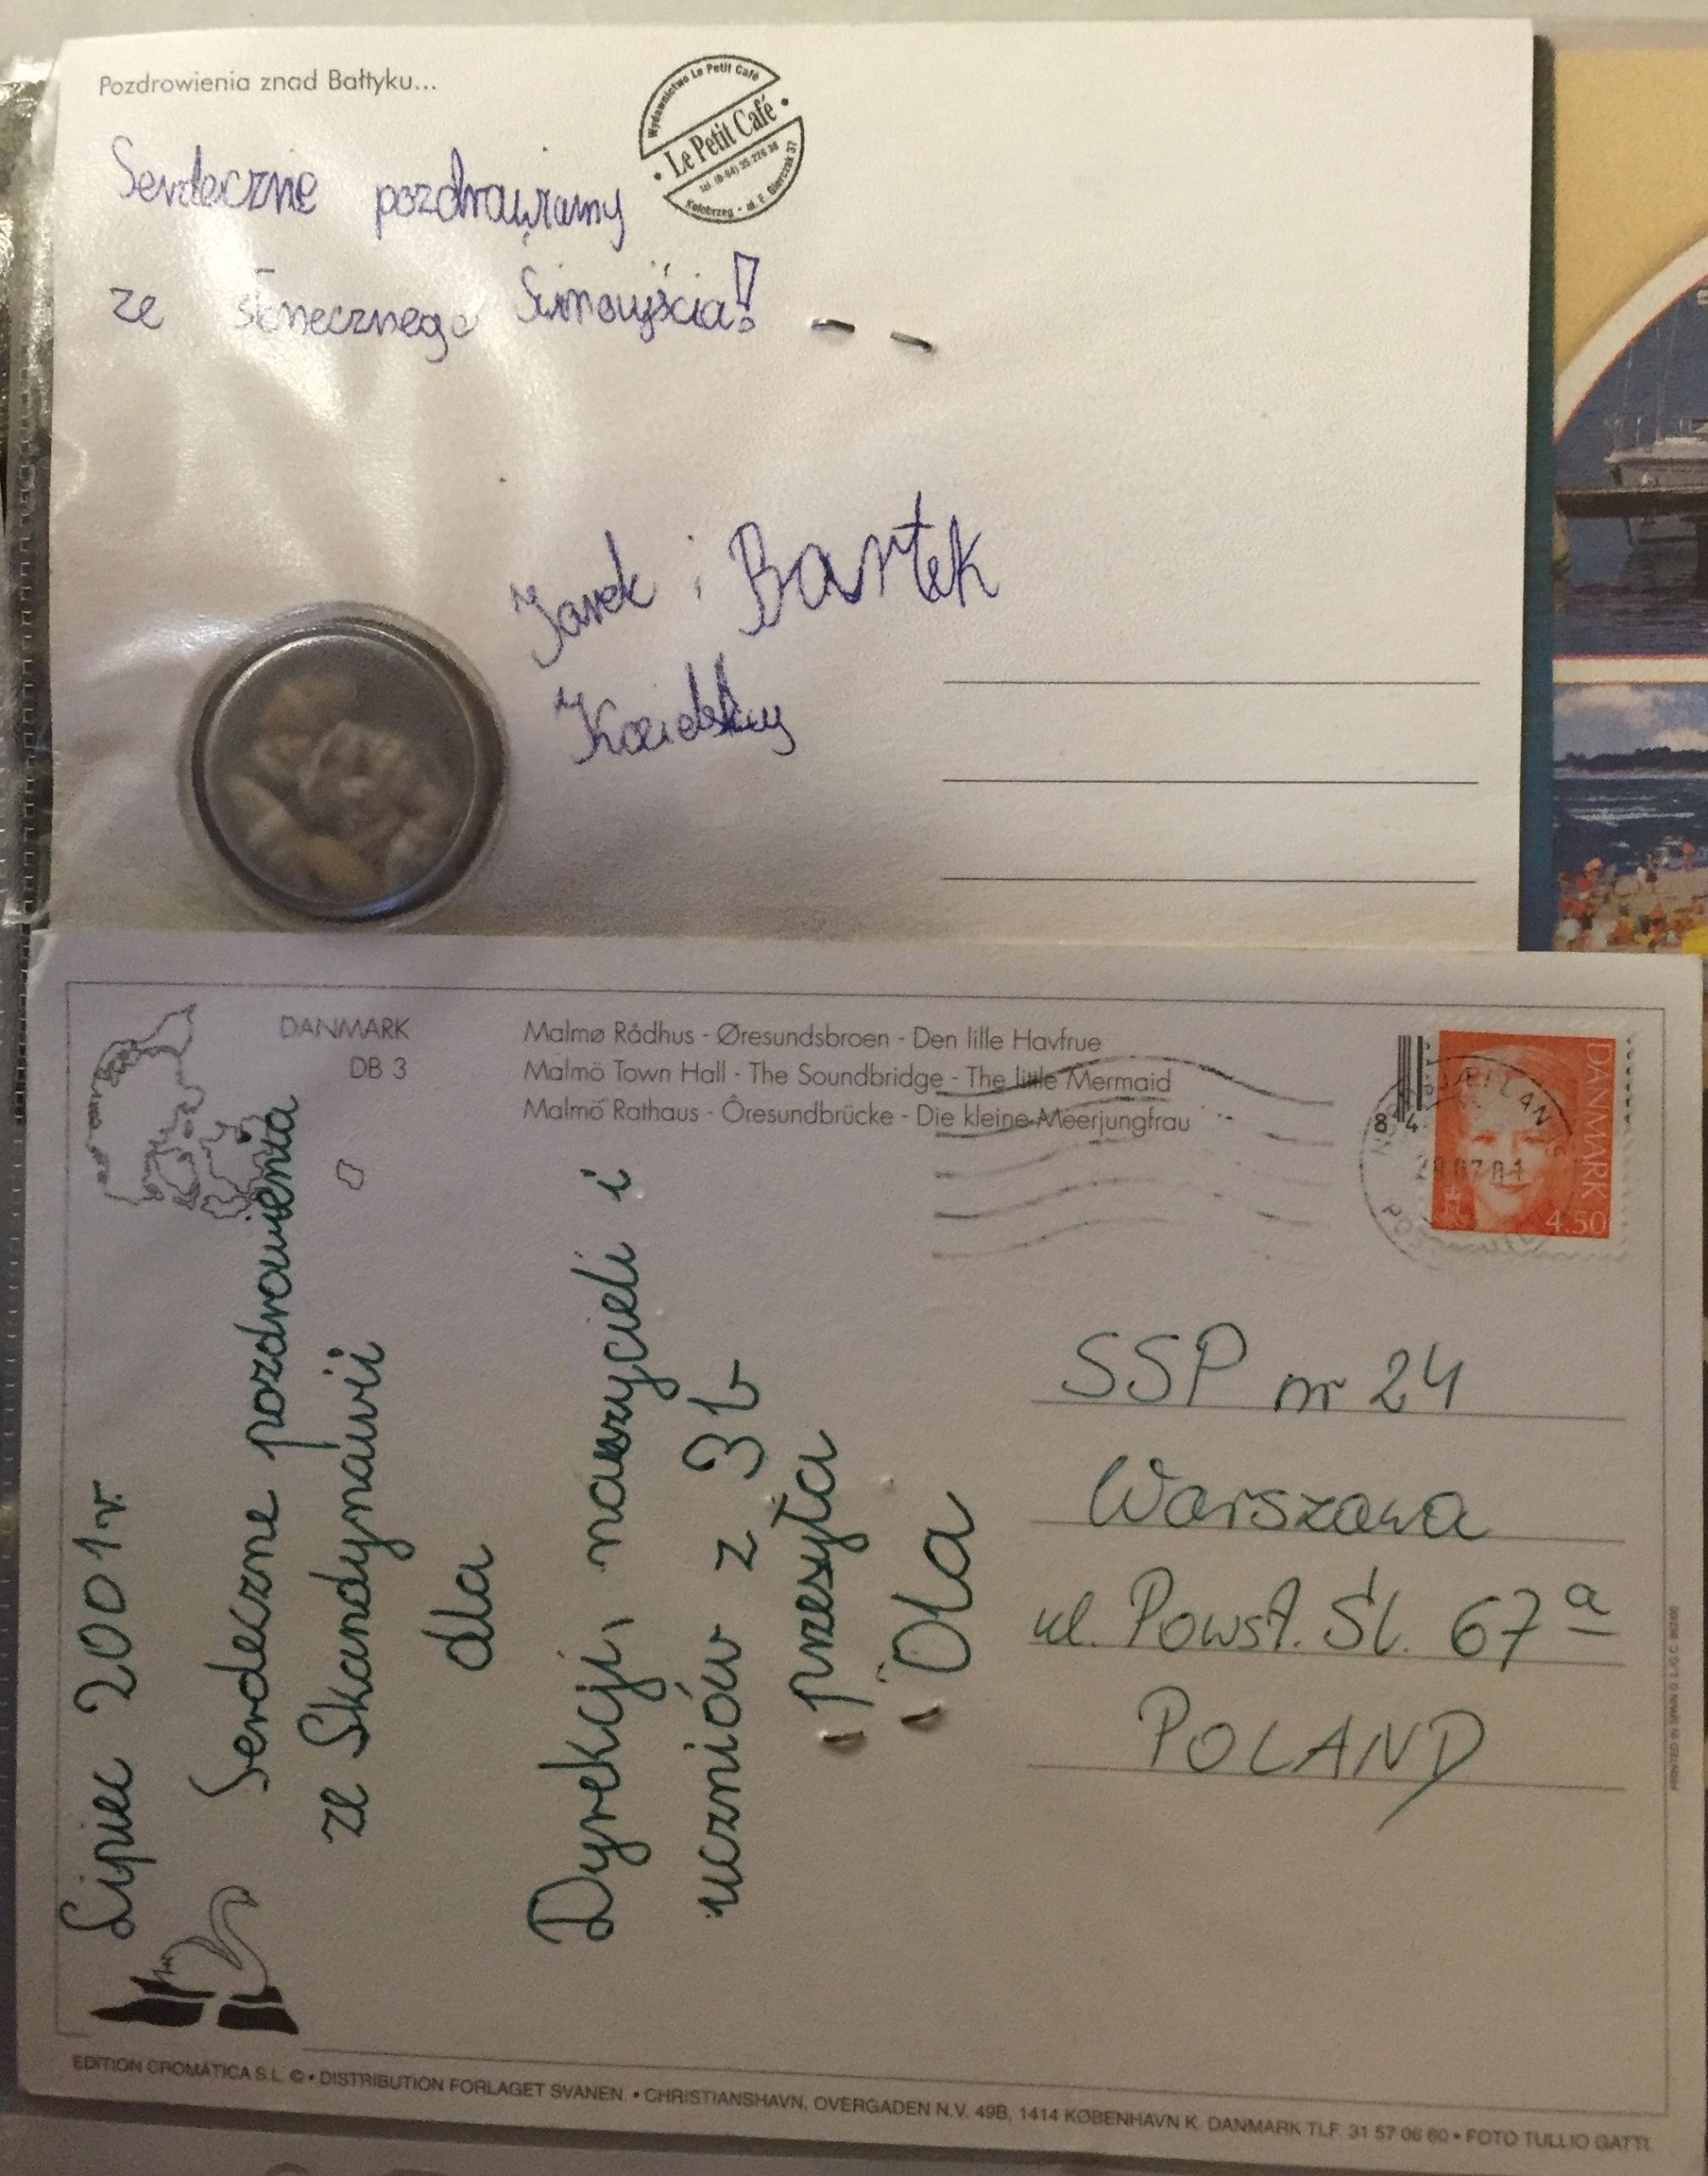 Pozdrowienia znad Bałtyku...
Wydawnictwo Le Petit Café
Le Petit Café
Kołobrzeg - ul. E. Gierczak 37
Serdecznie pozdrawiamy
ze słonecznego Świnoujścia!
Jarek i Bartek
DANMARK
DB 3
Malmø Rådhus - Øresundsbroen - Den lille Havfrue
Malmö Town Hall - The Soundbridge - The little Mermaid
Malmö Rathaus - Öresundbrücke - Die kleine Meerjungfrau
DANMARK
4.50
8 4
28 07 01
Lipiec 2001 r.
Serdeczne pozdrowienia
ze Skandynawii
dla
Dyrekcji, nauczycieli i
uczniów z 3b
przesyła
Ola
SSP nr 24
Warszawa
ul. Powst. Śl. 67 a
POLAND
EDITION CROMATICA S.L. © • DISTRIBUTION FORLAGET SVANEN. • CHRISTIANSHAVN. OVERGADEN N.V. 49B, 1414 KØBENHAVN K. DANMARK TLF. 31 57 06 60 • FOTO TULLIO GATTI.